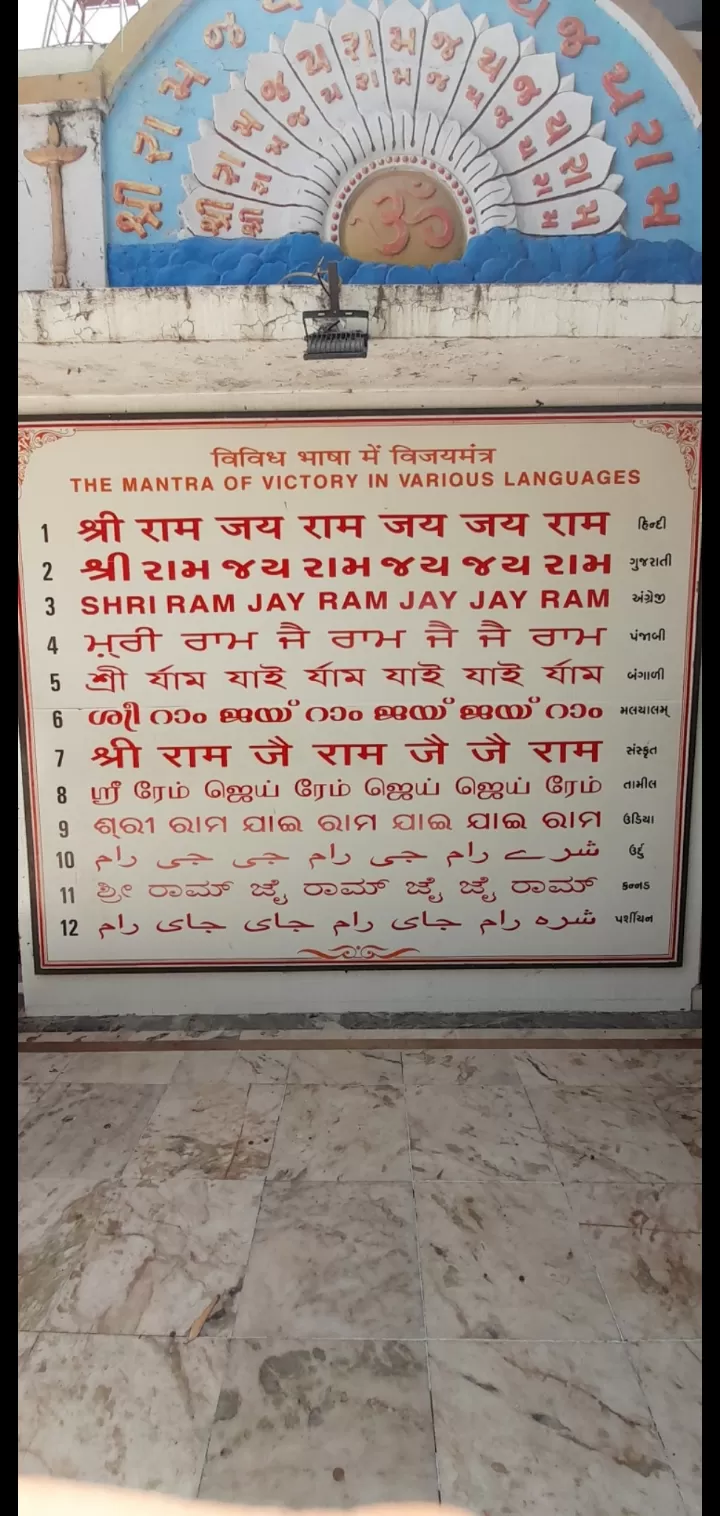 શ્રી રામ જય રામ જય જય રામ
શ્રી રામ જય રામ જય જય રામ
શ્રી રામ જય રામ જય જય રામ
ૐ
विविध भाषा में विजयमंत्र
THE MANTRA OF VICTORY IN VARIOUS LANGUAGES
1 श्री राम जय राम जय जय राम हिन्दी
2 શ્રી રામ જય રામ જય જય રામ ગુજરાતી
3 SHRI RAM JAY RAM JAY JAY RAM અંગ્રેજી
4 ਸ਼੍ਰੀ ਰਾਮ ਜੈ ਰਾਮ ਜੈ ਜੈ ਰਾਮ પંજાબી
5 শ্রী র্যাম যাই র্যাম যাই যাই র্যাম બંગાળી
6 ശ്രീ റാം ജയ് റാം ജയ് ജയ് റാം મલયાલમ્
7 श्री राम जै राम जै जै राम સંસ્કૃત
8 ஸ்ரீ ரேம் ஜெய் ரேம் ஜெய் ஜெய் ரேம் તામીલ
9 ଶ୍ରୀ ରାମ ଯାଇ ରାମ ଯାଇ ଯାଇ ରାମ ઉડિયા
10 شرے رام جی رام جی جی رام ઉર્દુ
11 ಶ್ರೀ ರಾಮ್ ಜೈ ರಾಮ್ ಜೈ ಜೈ ರಾಮ್ કન્નડ
12 شره رام جای رام جای جای رام પર્શીયન